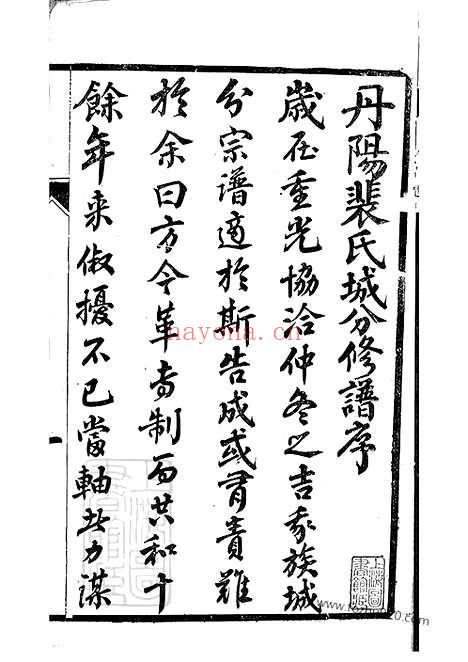 丹陽裴氏城分修譜序
歲在重光協洽仲冬之吉我族城
分宗譜適於斯告成或有責難
於余曰方今革専制而共和十
餘年来俶擾不已當軸者力謀
hayona.cn
上海圖書館藏